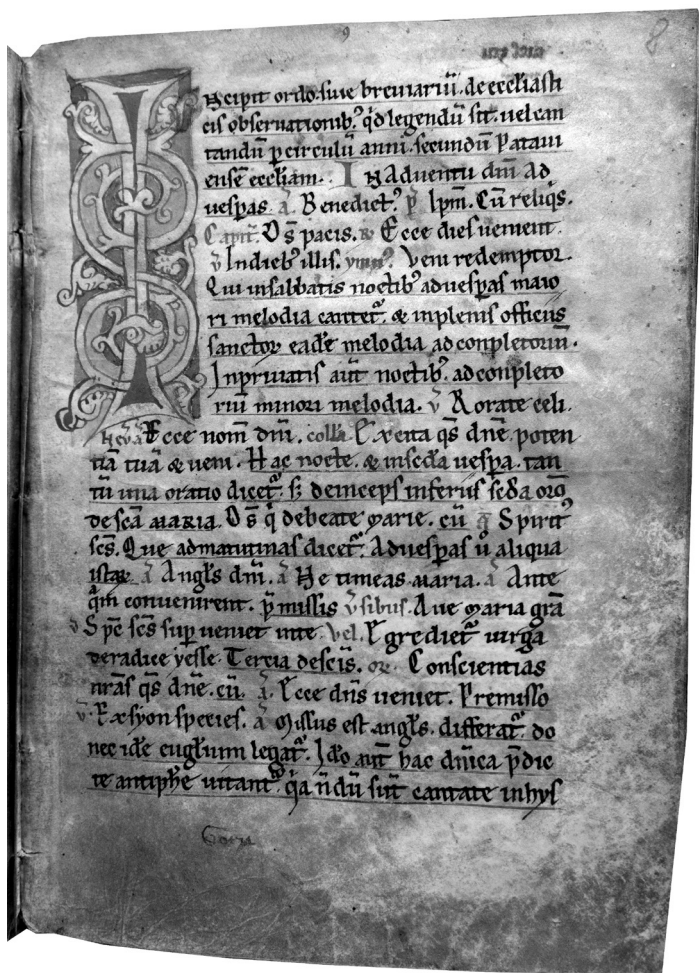 8
Incipit ordo siue breuiariū. de eccl̄iasti
cis obseruationib; qd̄ legendū sit. uel can
tandū p circulū anni. secundū Pataui
ensē eccl̄iam. In aduentu dn̄i ad
uesp̄as. a̅. Benedict᷒. p̄ Ip̄m. Cū reliq̄s.
Capit̄. Ds̄ pacis. Ecce dies ueniunt.
v̄ In dieb; illis. ymn᷒. Veni redemptor.
Qui in sabbatis noctib; ad uesp̄as maio
ri melodia cantet᷑. & in plenis officiis
sanctoꝝ eadē melodia ad conpletoriū.
In priuatis aūt noctib; ad conpleto
riū minori melodia. v̄ Rorate celi.
Ecce nom̄ dn̄i. coll̄a. Excita qs̄ dn̄e poten
tiā tuā & ueni. Hac nocte. & in scd̄a uesp̄a. tan
tū una oratio dicet᷑. s; deinceps inferius scd̄a orō
de scā MARIA. Ds̄ q̄ de beate marie. cū a̅ Spirit᷒
scs̄. Que ad matutinas dicet᷑. Ad uesp̄as ū aliqua
istaꝝ. a̅ Angl̄s dn̄i. a̅ Ne timeas maria. a̅ Ante
q̄m conuenirent. p̄missis v̄sibus. Aue maria grā
v̄ Sp̄c scs̄ sup ueniet in te. Vel. Egrediet᷑ uirga
de radice yesse. Tercia de scis̄. or̄. Conscientias
nrās qs̄ dn̄e. cū. a̅. Ecce dn̄s ueniet. Premisso
v̄. Ex syon species. a̅ Missus est angl̄s. differat᷑. do
nec idē eugl̄ium legat᷑. Ido aūt hac dn̄ica p̄dic
te antiphe uitant᷑. q̄a n̄dū sūt cantate in hys